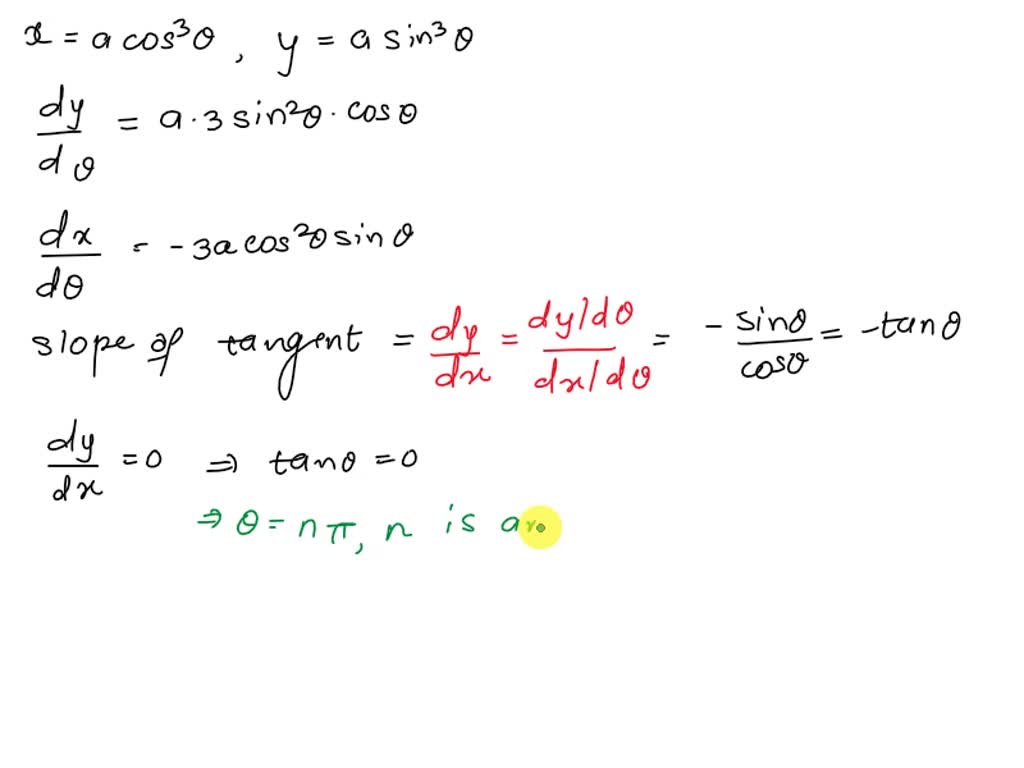 x = a cos³θ, y = a sin³θ
dy/dθ = a·3 sin²θ · cosθ
dx/dθ = -3a cos²θ sinθ
slope of tangent = dy/dx = (dy/dθ)/(dx/dθ) = - sinθ/cosθ = -tanθ
dy/dx = 0 ⇒ tanθ = 0
⇒ θ = nπ, n is